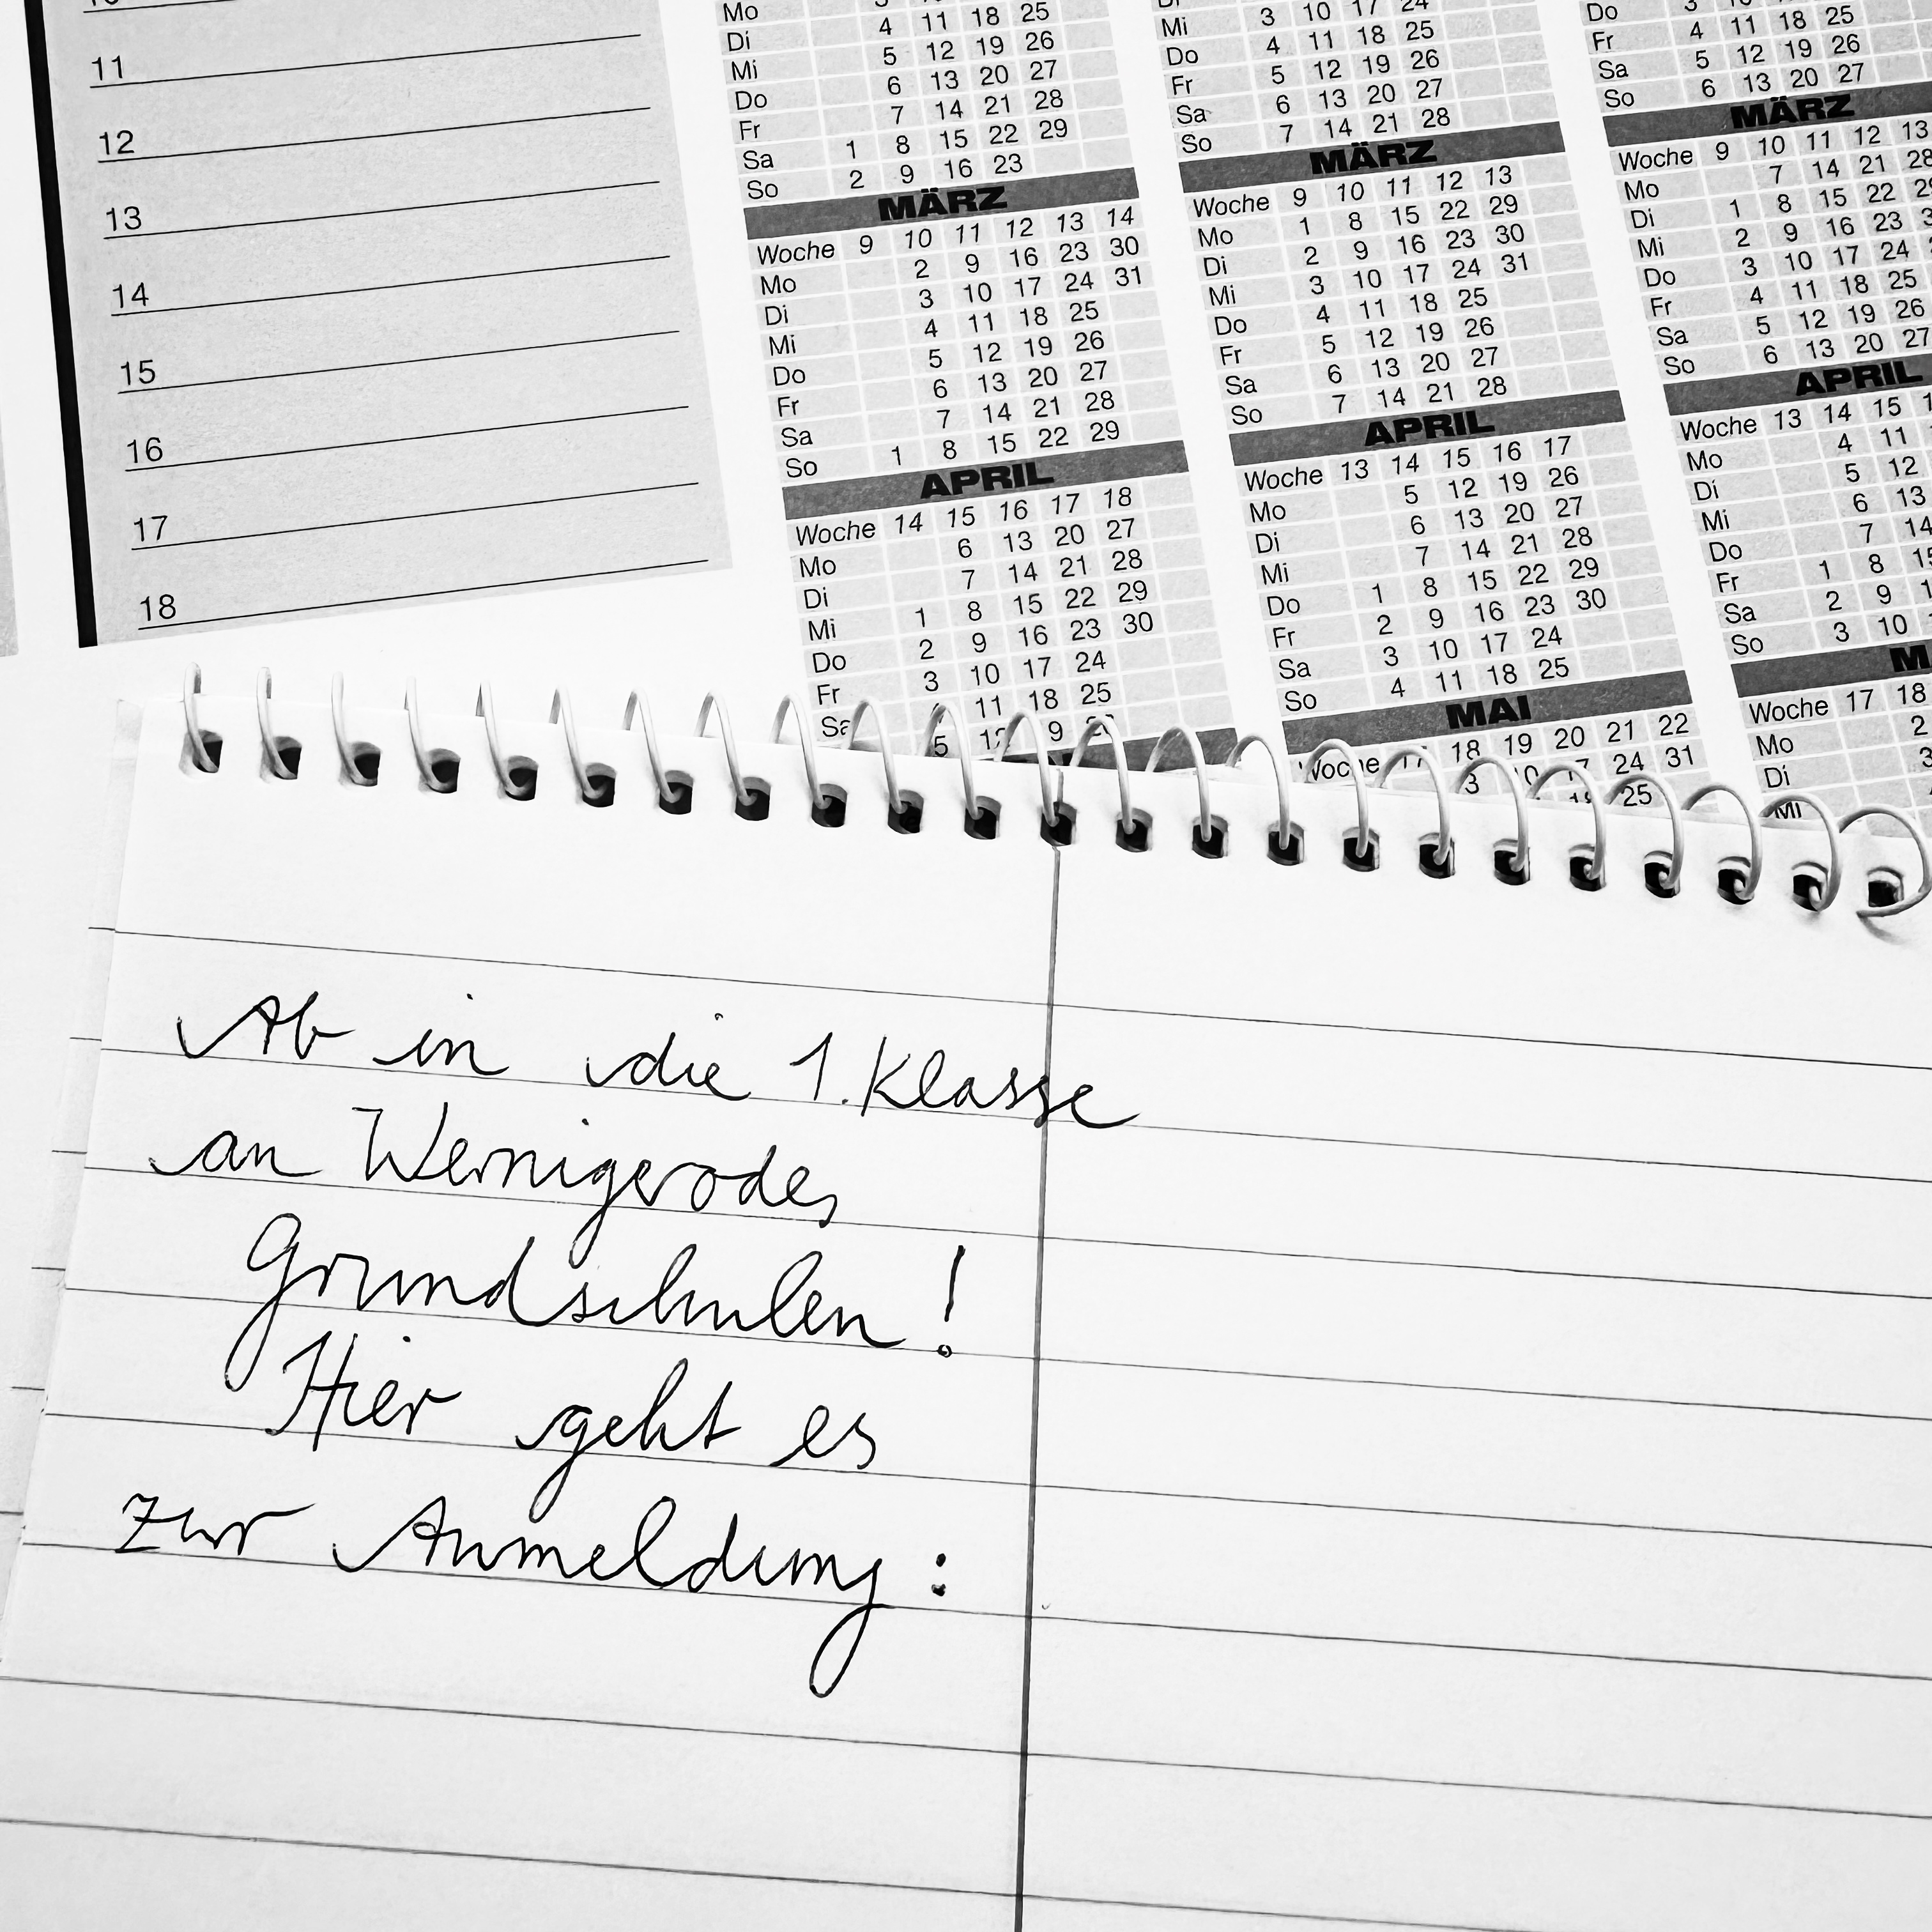 10
11
12
13
14
15
16
17
18
Mo 3
Di 4 11 18 25
Mi 5 12 19 26
Do 6 13 20 27
Fr 7 14 21 28
Sa 1 8 15 22 29
So 2 9 16 23
MÄRZ
Woche 9 10 11 12 13 14
Mo 2 9 16 23 30
Di 3 10 17 24 31
Mi 4 11 18 25
Do 5 12 19 26
Fr 6 13 20 27
Sa 7 14 21 28
So 1 8 15 22 29
APRIL
Woche 14 15 16 17 18
Mo 6 13 20 27
Di 7 14 21 28
Mi 1 8 15 22 29
Do 2 9 16 23 30
Fr 3 10 17 24
Sa 11 18 25
5
Di
Mi 3 10 17 24
Do 4 11 18 25
Fr 5 12 19 26
Sa 6 13 20 27
So 7 14 21 28
MÄRZ
Woche 9 10 11 12 13
Mo 1 8 15 22 29
Di 2 9 16 23 30
Mi 3 10 17 24 31
Do 4 11 18 25
Fr 5 12 19 26
Sa 6 13 20 27
So 7 14 21 28
APRIL
Woche 13 14 15 16 17
Mo 5 12 19 26
Di 6 13 20 27
Mi 7 14 21 28
Do 1 8 15 22 29
Fr 2 9 16 23 30
Sa 3 10 17 24
So 4 11 18 25
MAI
Woche 17 18 19 20 21 22
3 24 31
25
Do 3
Fr 4 11 18 25
Sa 5 12 19 26
So 6 13 20 27
MÄRZ
Woche 9 10 11 12 13
Mo 7 14 21 28
Di 1 8 15 22
Mi 2 9 16 23
Do 3 10 17 24
Fr 4 11 18 25
Sa 5 12 19 26
So 6 13 20 27
APRIL
Woche 13 14 15
Mo 4 11
Di 5 12
Mi 6 13
Do 7 14
Fr 1 8
Sa 2 9
So 3 10
Woche 17 18
Mo 2
Di
Mi
Ab in die 1. Klasse
an Wernigerodes
Grundschulen!
Hier geht es
zur Anmeldung: